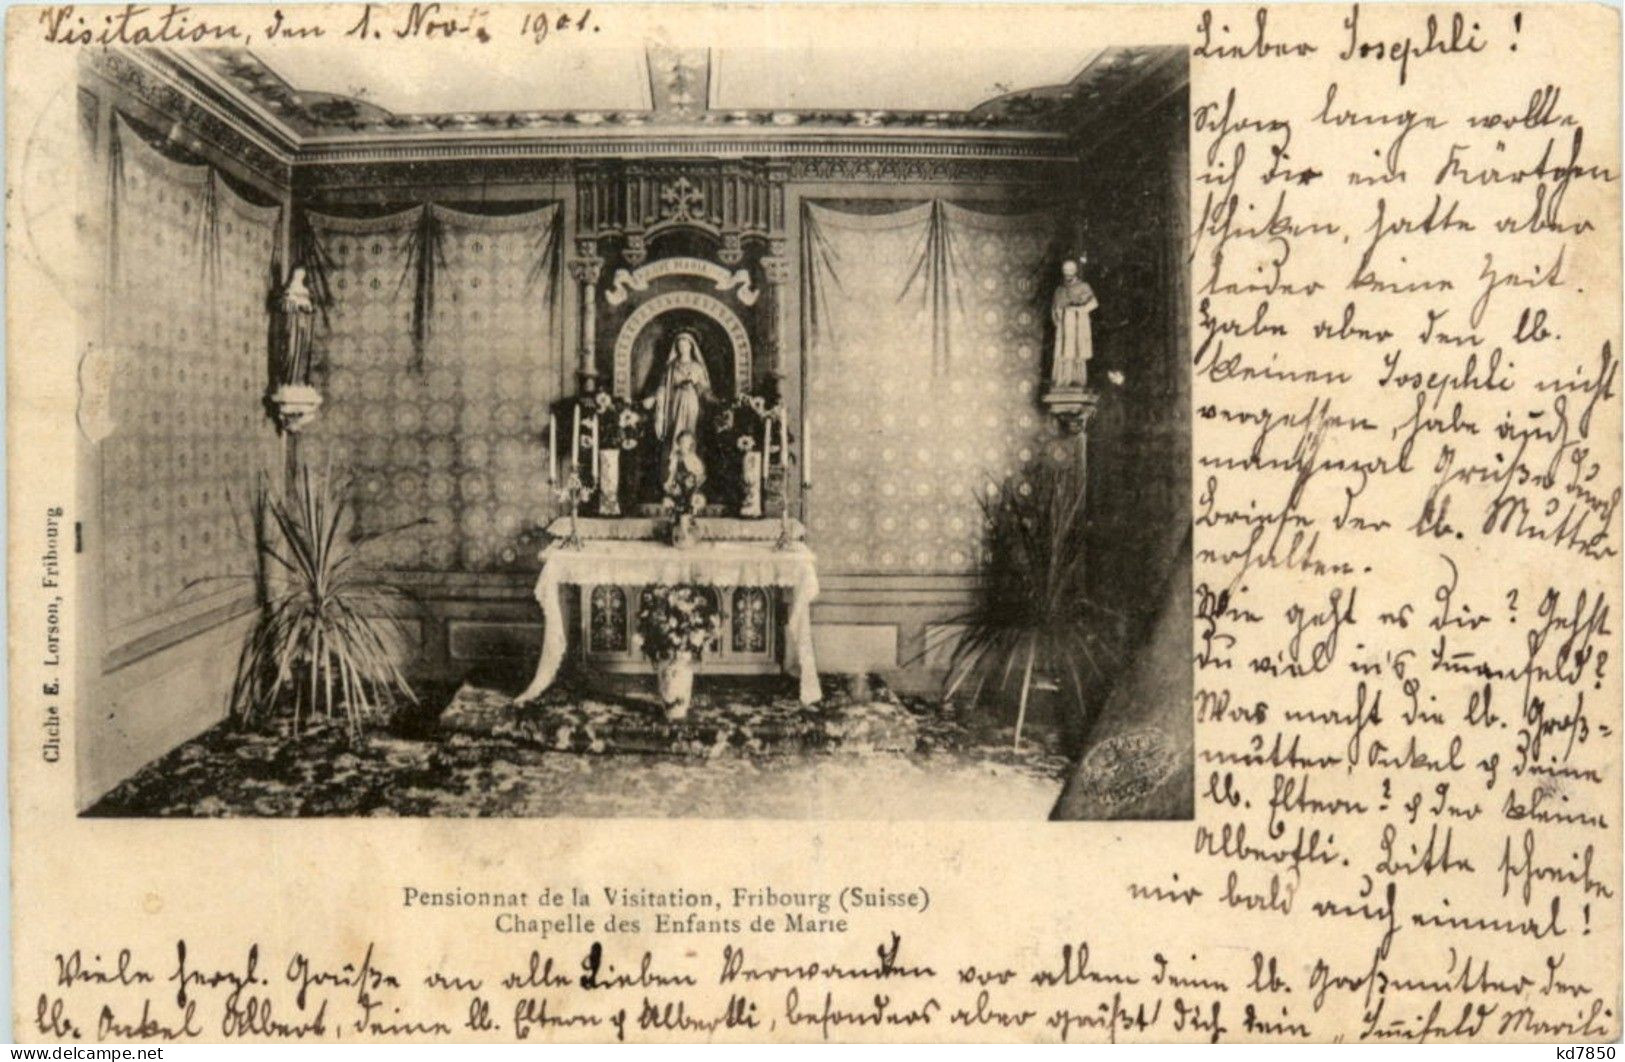 Visitation, den 1. Nov. 1901.
Lieber Josephli!
Schon lange wollte
ich dir ein Kärtchen
schicken, hatte aber
leider keine Zeit.
Habe aber den lb.
kleinen Josephli nicht
vergessen, habe auch
manchmal Grüße durch
Briefe der lb. Mutter
erhalten.
Wie geht es Dir? Gehst
du viel in's Immenfeld?
Was macht die lb. Groß-
mutter, Onkel & deine
lb. Eltern? & der kleine
Albertli. Bitte schreibe
mir bald auch einmal!
Cliché E. Lorson, Fribourg
AVE MARIA
Pensionnat de la Visitation, Fribourg (Suisse)
Chapelle des Enfants de Marie
Viele herzl. Grüße an alle Lieben Verwandten vor allem deine lb. Großmutter, der
lb. Onkel Albert, deine lb. Eltern & Albertli, besonders aber grüßt dich dein Immifeld Marili
kd7850